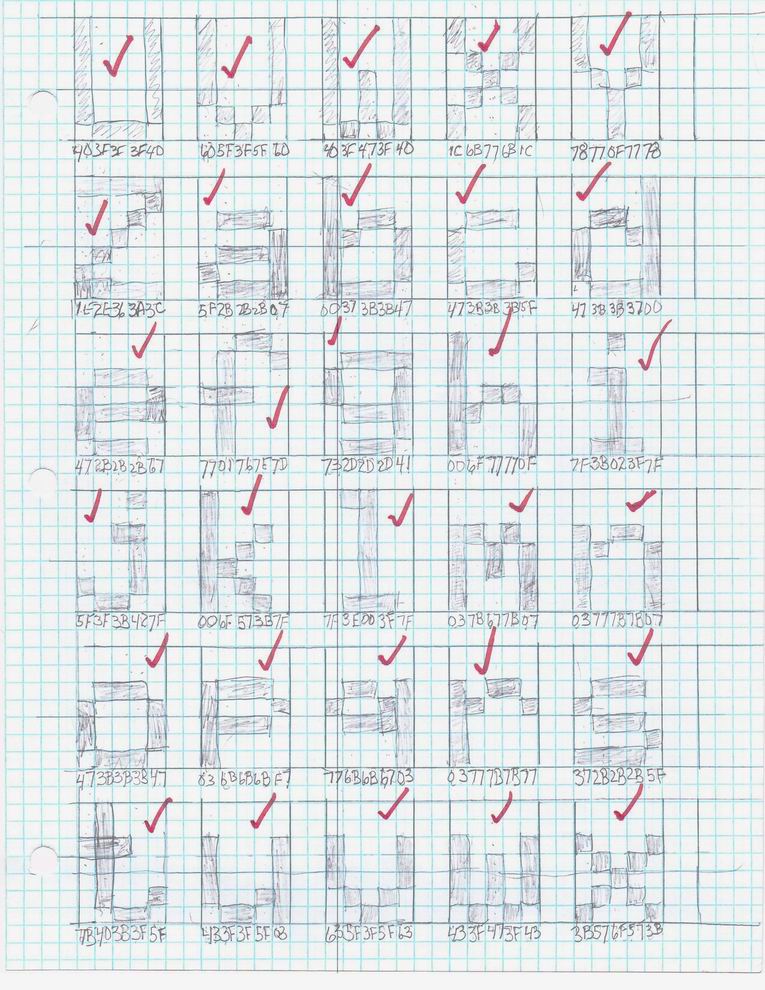 403F3F3F40 605F3F5F60 403F473F40 1C6B776B1C 78770F7778
1E2E363A3C 5F2B2B2B07 00373B3B47 473B3B3B5F 473B3B3700
472B2B2B67 7701767E7D 732D2D2D41 006F77770F 7F3B023F7F
5F3F3B427F 006F573B7F 7F3E003F7F 037B677B07 03777B7B07
473B3B3B47 036B6B6BF7 776B6B6703 03777B7B77 372B2B2B5F
7B403B3F5F 433F3F5F03 635F3F5F63 433F473F43 3B576F573B